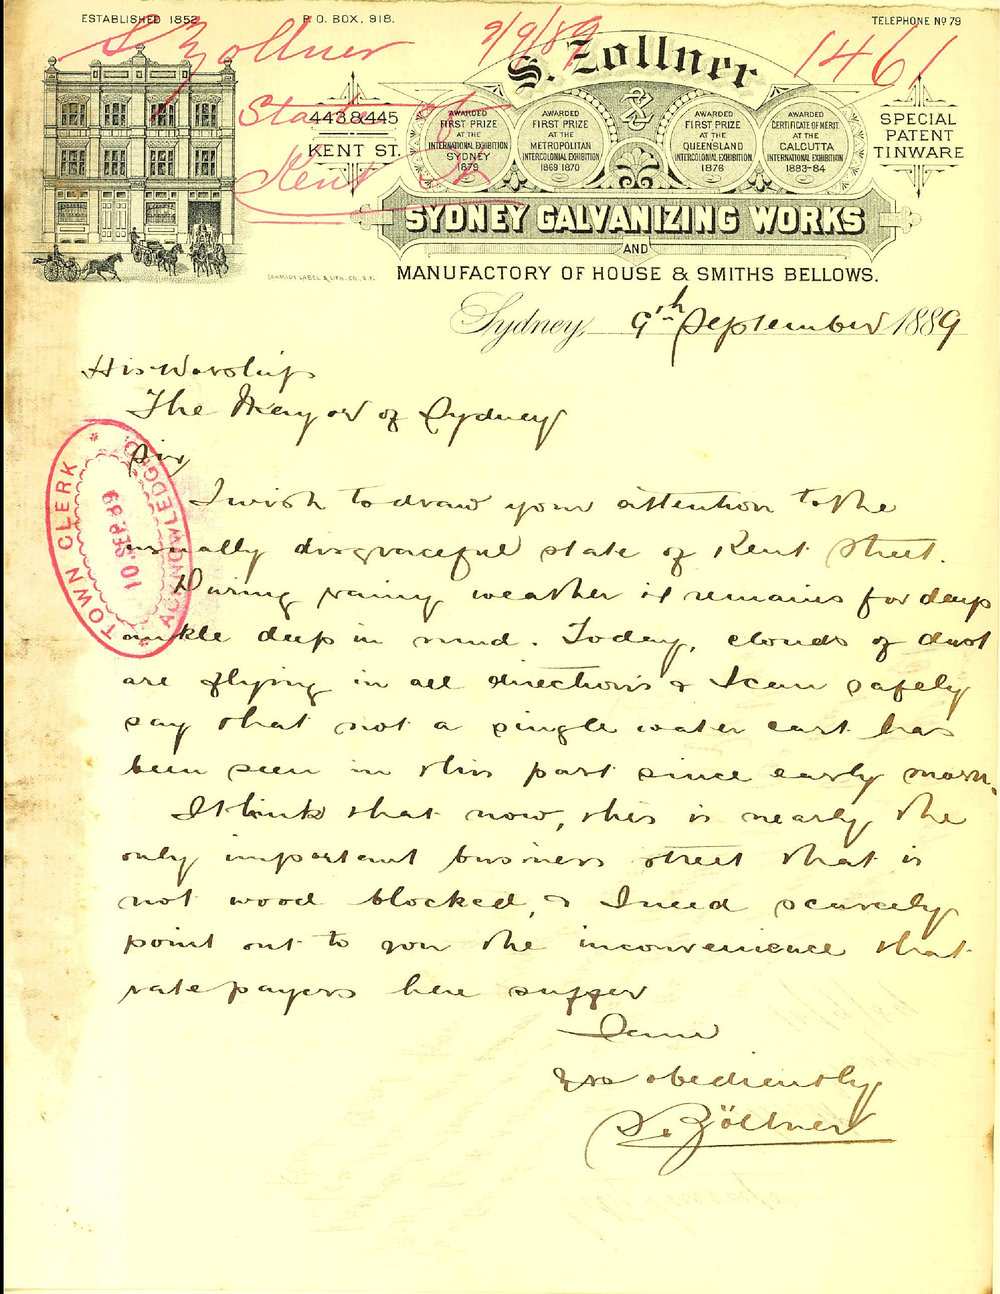 ESTABLISHED 1852
P.O. BOX, 918.
TELEPHONE Nº 79
S Zollner 9/9/89 1461
State of
Kent St
S. Zollner
443 & 445
KENT ST.
AWARDED FIRST PRIZE AT THE INTERNATIONAL EXHIBITION SYDNEY 1879
AWARDED FIRST PRIZE AT THE METROPOLITAN INTERCOLONIAL EXHIBITION 1869 1870
AWARDED FIRST PRIZE AT THE QUEENSLAND INTERCOLONIAL EXHIBITION 1876
AWARDED CERTIFICATE OF MERIT AT THE CALCUTTA INTERNATIONAL EXHIBITION 1883-84
SPECIAL
PATENT
TINWARE
SYDNEY GALVANIZING WORKS
AND
MANUFACTORY OF HOUSE & SMITHS BELLOWS.
SCHMIDT LABEL & LITH. CO., S.F.
Sydney, 9th September 1889
His Worship
The Mayor of Sydney
Sir,
I wish to draw your attention to the
usually disgraceful state of Kent Street.
During rainy weather it remains for days
ankle deep in mud. Today, clouds of dust
are flying in all directions & I can safely
say that not a single water cart has
been seen in this part since early morn.
I think that now, this is nearly the
only important business street that is
not wood blocked, & I need scarcely
point out to you the inconvenience that
rate payers here suffer
I am
Yrs obediently
S. Zöllner
TOWN CLERK
10 SEP. 89
ACKNOWLEDGED.